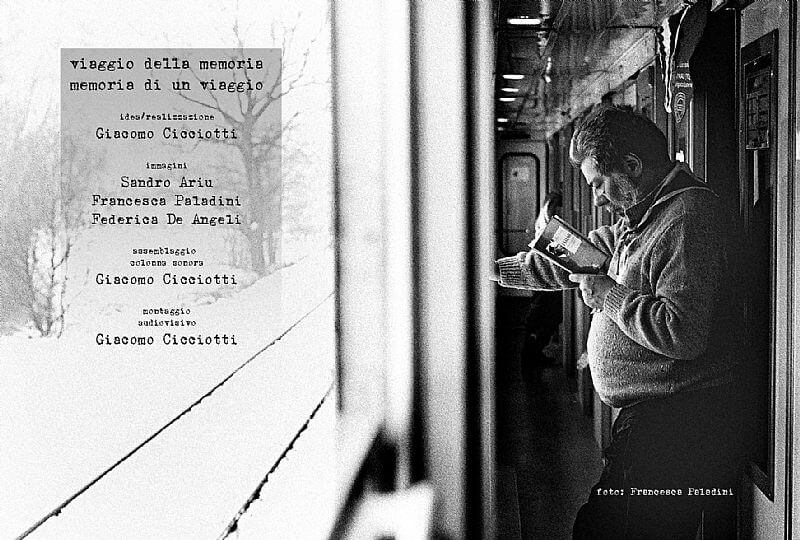 viaggio della memoria
memoria di un viaggio
idea/realizzazione
Giacomo Cicciotti
immagini
Sandro Ariu
Francesca Paladini
Federica De Angeli
assemblaggio
colonna sonora
Giacomo Cicciotti
montaggio
audiovisivo
Giacomo Cicciotti
foto: Francesca Paladini